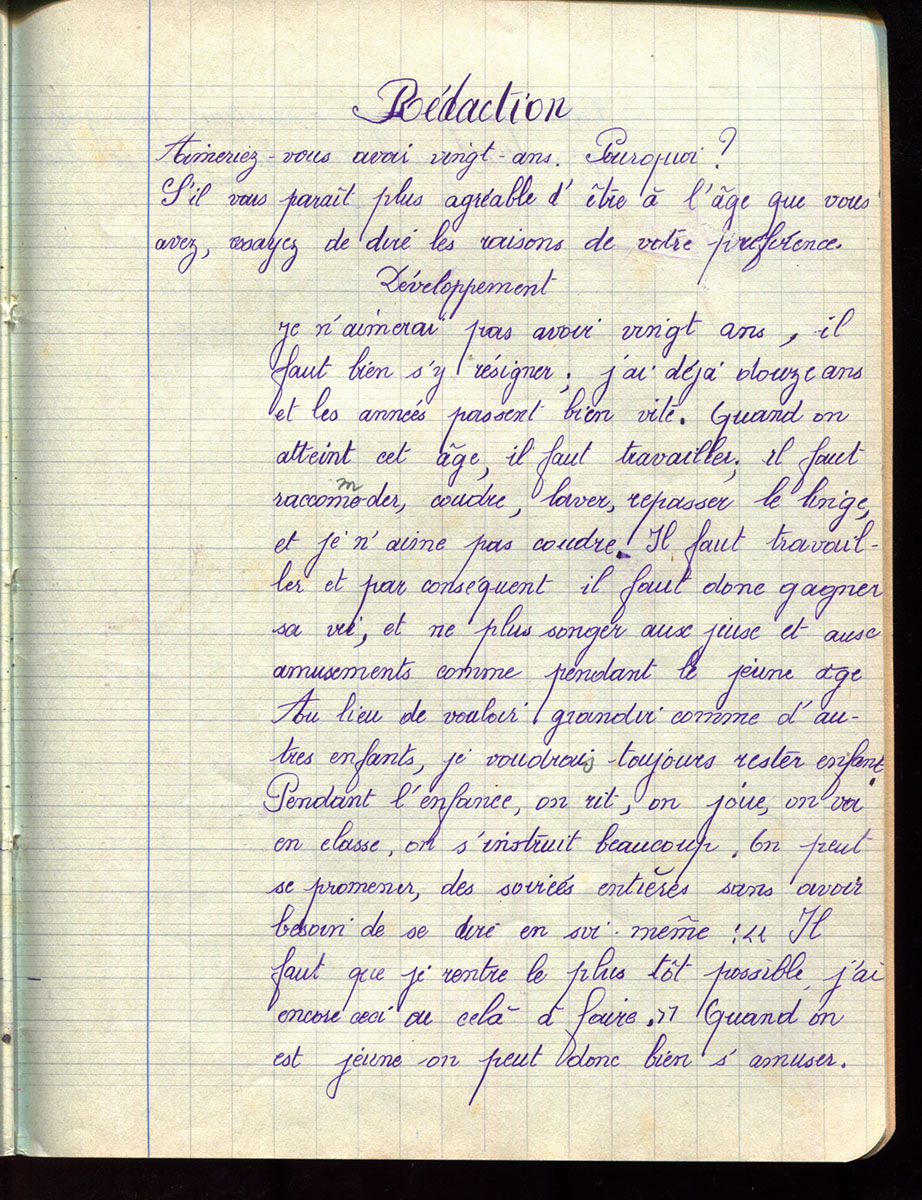 Rédaction
Aimeriez-vous avoir vingt-ans. Pourquoi ?
S'il vous paraît plus agréable d' être à l'âge que vous
avez, essayez de dire les raisons de votre préférence.
Développement
Je n'aimerai pas avoir vingt ans, il
faut bien s'y résigner ; j'ai déjà douze ans
et les années passent bien vite. Quand on
atteint cet âge, il faut travailler; il faut
raccommoder, coudre, laver, repasser le linge,
et je n'aime pas coudre. Il faut travail-
ler et par conséquent il faut donc gagner
sa vie, et ne plus songer aux jeux et aux
amusements comme pendant le jeune âge
Au lieu de vouloir grandir comme d'au-
tres enfants, je voudrais toujours rester enfant.
Pendant l'enfance, on rit, on joue, on va
en classe, on s'instruit beaucoup. On peut
se promener, des soirées entières sans avoir
besoin de se dire en soi-même : « Il
faut que je rentre le plus tôt possible, j'ai
encore ceci ou celà à faire. » Quand on
est jeune on peut donc bien s'amuser.